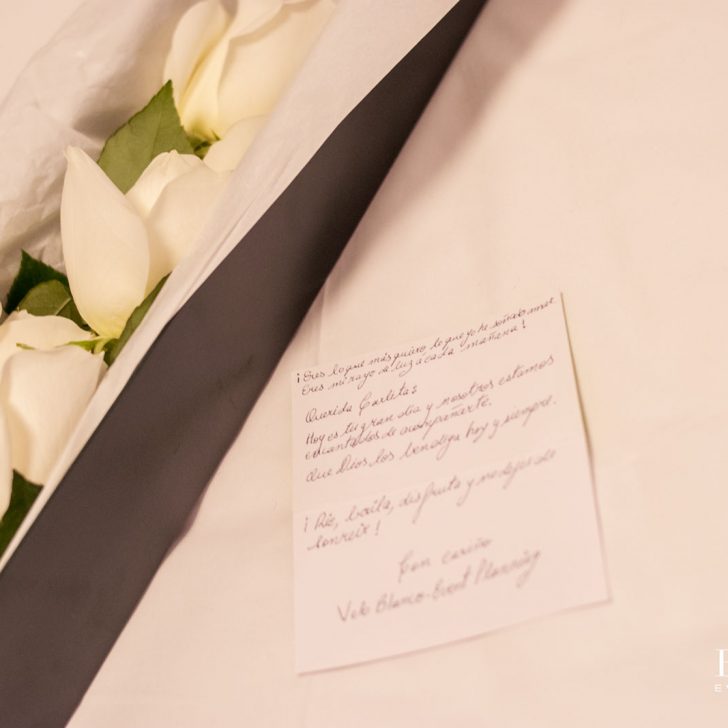 ¡Eres lo que más quiero lo que yo he soñado amor
Eres mi rayo de luz a cada mañana!
Querida Carlita:
Hoy es tu gran día y nosotros estamos
encantados de acompañarte.
Que Dios los bendiga hoy y siempre.
¡Ríe, baila, disfruta y no dejes de
sonreir!
Con cariño
Velo Blanco-Event Planning